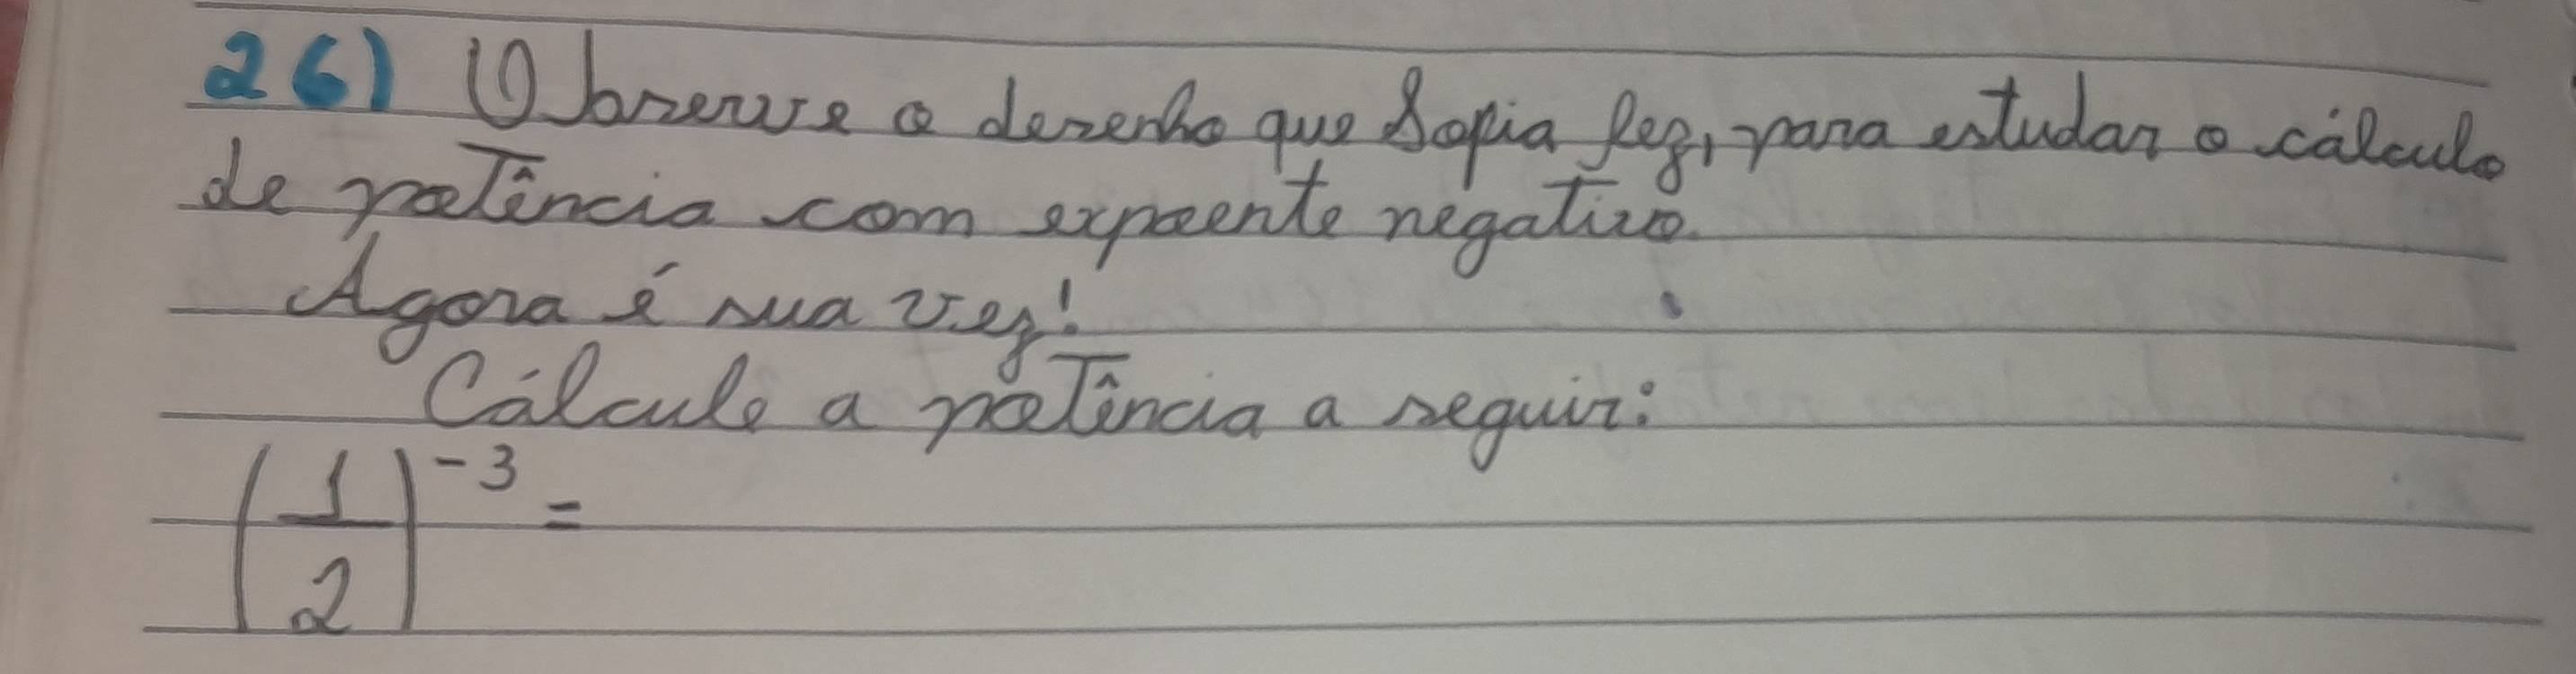 26) Observe o desenho que Sopia fez, para estudar o cálculo
de potência com expoente negativo.
Agora é sua vez!
Cálcule a potência a seguir:
(1/2)^-3 =